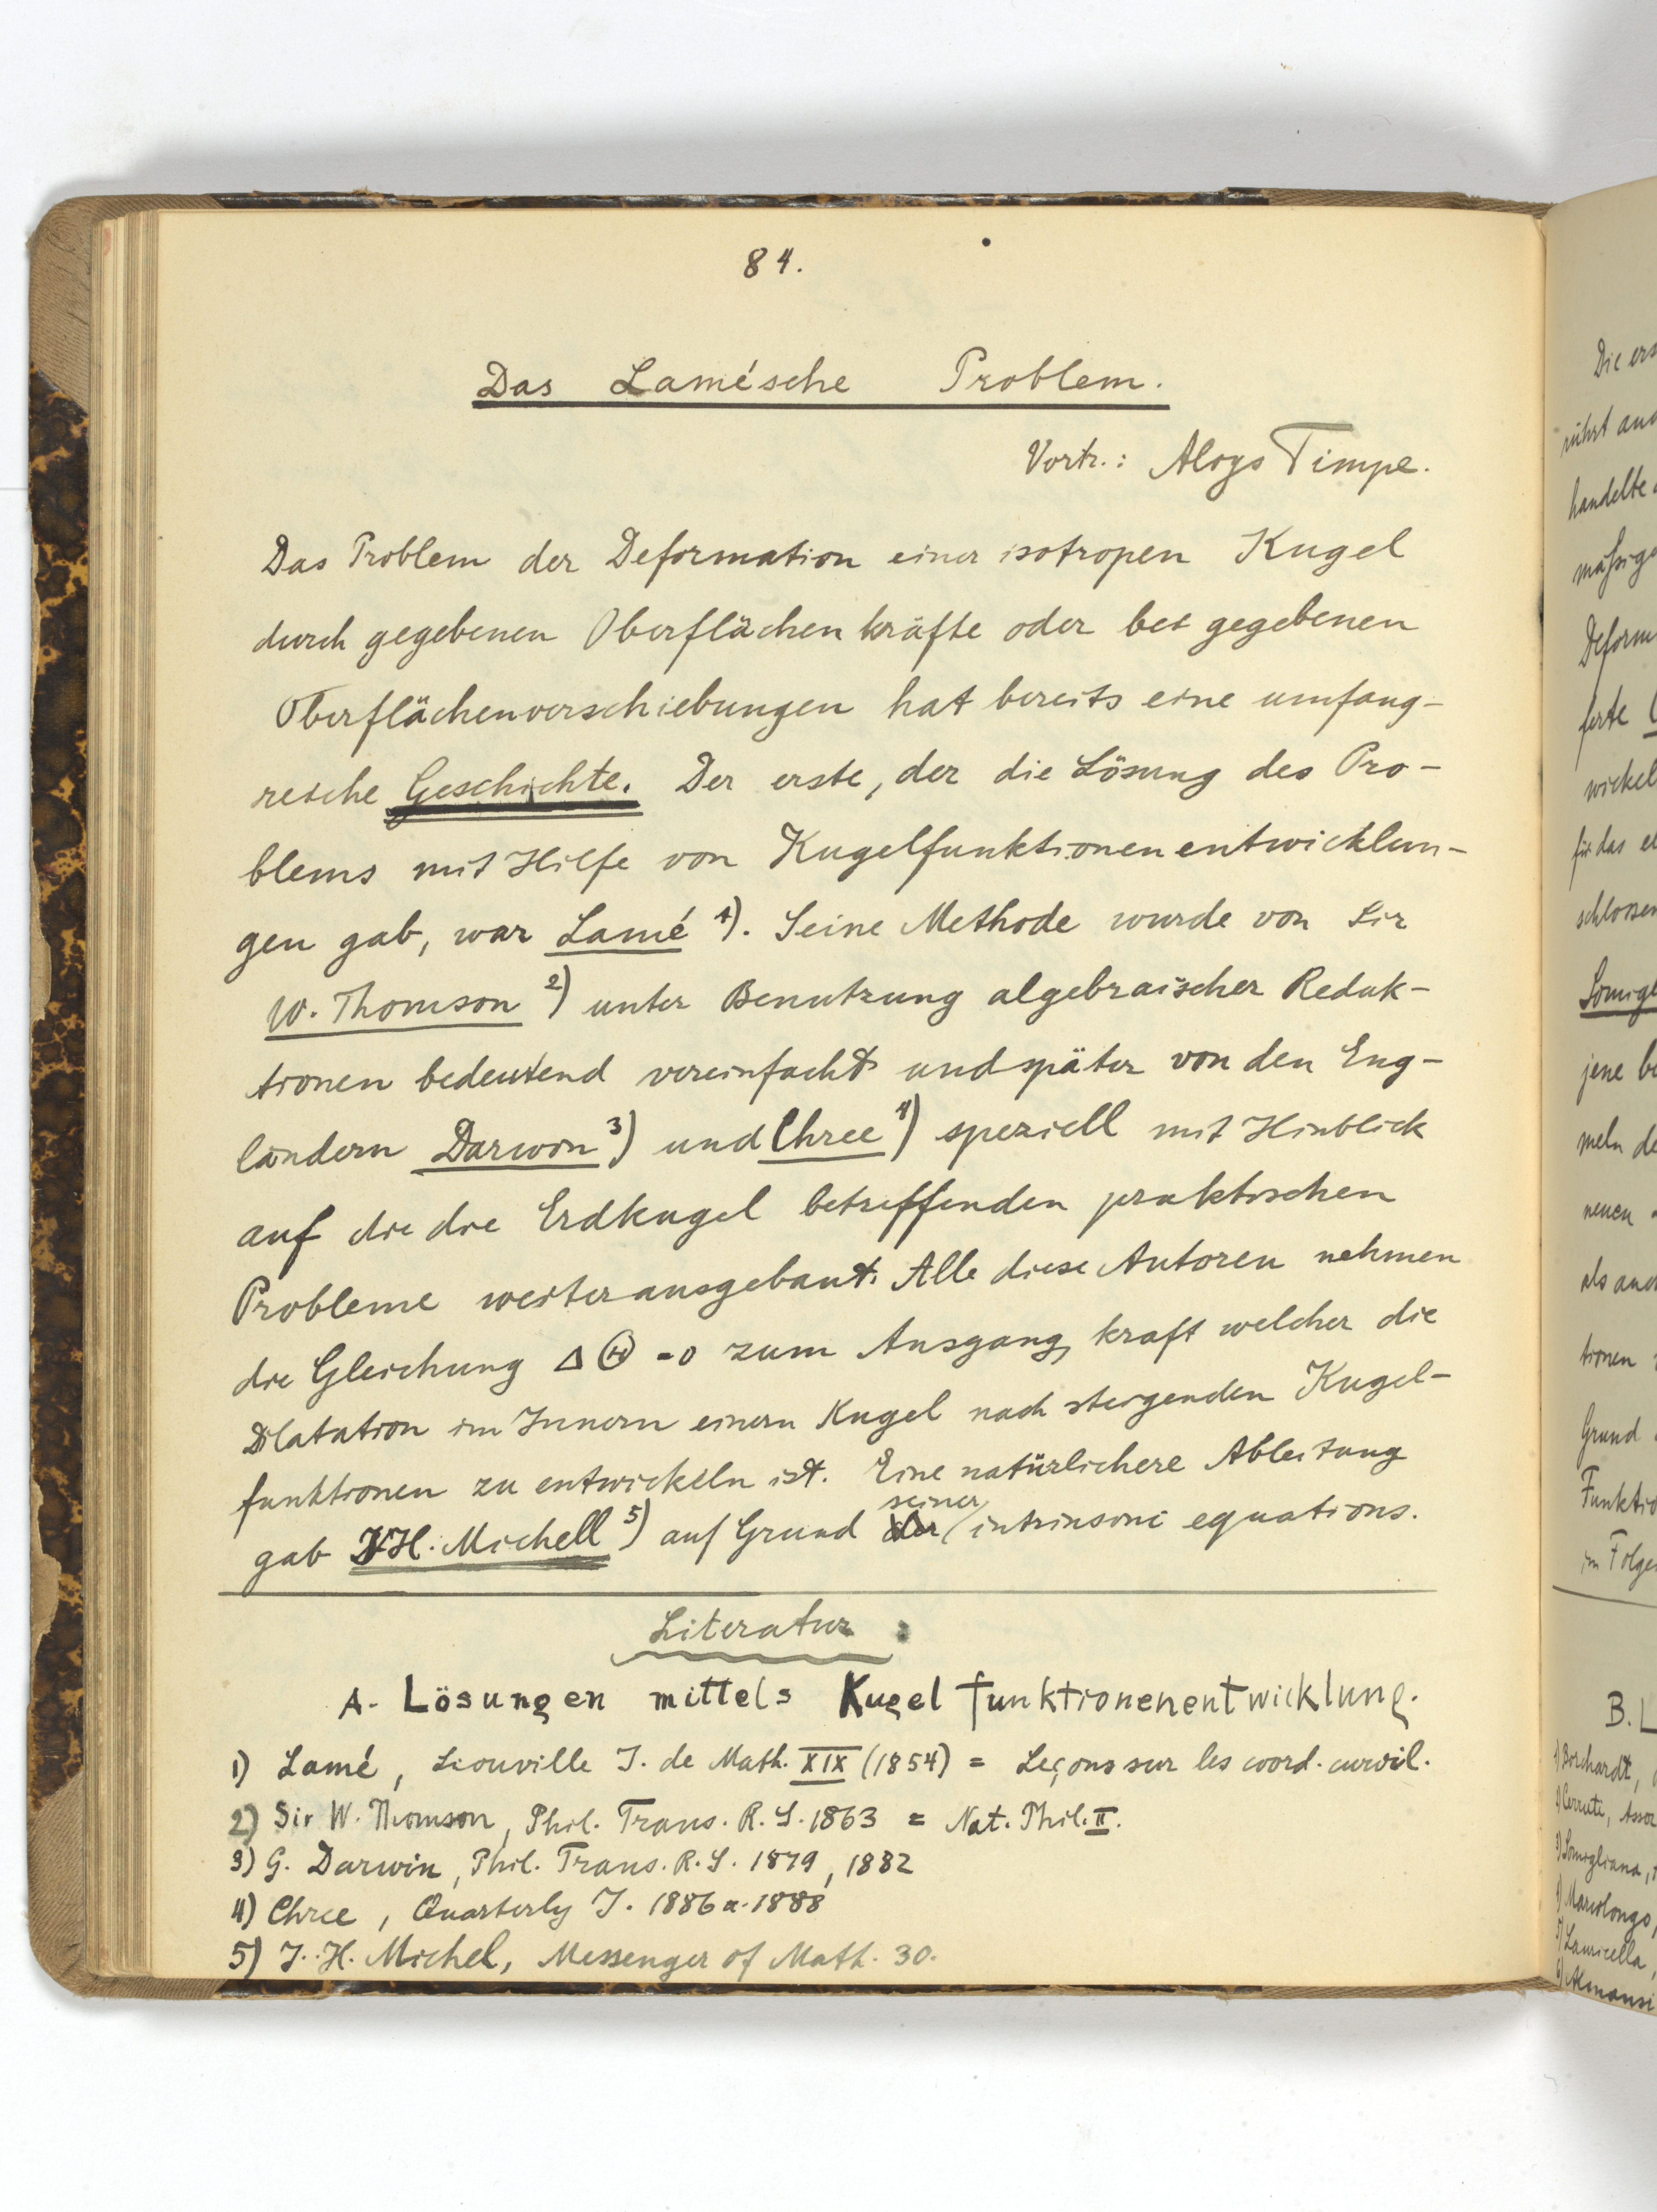 84.
Das Lamé'sche Problem.
Vortr.: Aloys Timpe.
Das Problem der Deformation einer isotropen Kugel
durch gegebenen Oberflächenkräfte oder bei gegebenen
Oberflächenverschiebungen hat bereits eine umfang-
reiche Geschichte. Der erste, der die Lösung des Pro-
blems mit Hilfe von Kugelfunktionenentwicklun-
gen gab, war Lamé 1). Seine Methode wurde von Sir
W. Thomson 2) unter Benutzung algebraischer Reduk-
tionen bedeutend vereinfacht und später von den Eng-
ländern Darwin 3) und Chree 4) speziell mit Hinblick
auf die die Erdkugel betreffenden praktischen
Probleme weiter ausgebaut. Alle diese Autoren nehmen
die Gleichung Δ Θ = 0 zum Ausgang, kraft welcher die
Dilatation im Innern einern Kugel nach steigenden Kugel-
funktionen zu entwickeln ist. Eine natürlichere Ableitung
gab J.H. Michell 5) auf Grund seiner intrinsoni equations.
Literatur:
A. Lösungen mittels Kugelfunktionenentwicklung.
1) Lamé, Liouville J. de Math. XIX (1854) = Leçons sur les coord. curvil.
2) Sir W. Thomson, Phil. Trans. R. S. 1863 = Nat. Phil. II.
3) G. Darwin, Phil. Trans. R. S. 1879, 1882
4) Chree, Quarterly J. 1886 u. 1888
5) J. H. Michel, Messenger of Math. 30.
Die ers
rührt
handelte
mäßige
Deform
ferte
wickel
für das
schlossen
Somigl
jene be
meln de
neuen
als and
tionen
Grund
Funktio
im Folge
B. L
1) Borchardt,
2) Cerruti,
3) Somigliana,
4) Marcolongo,
5) Lauricella,
6) Almansi